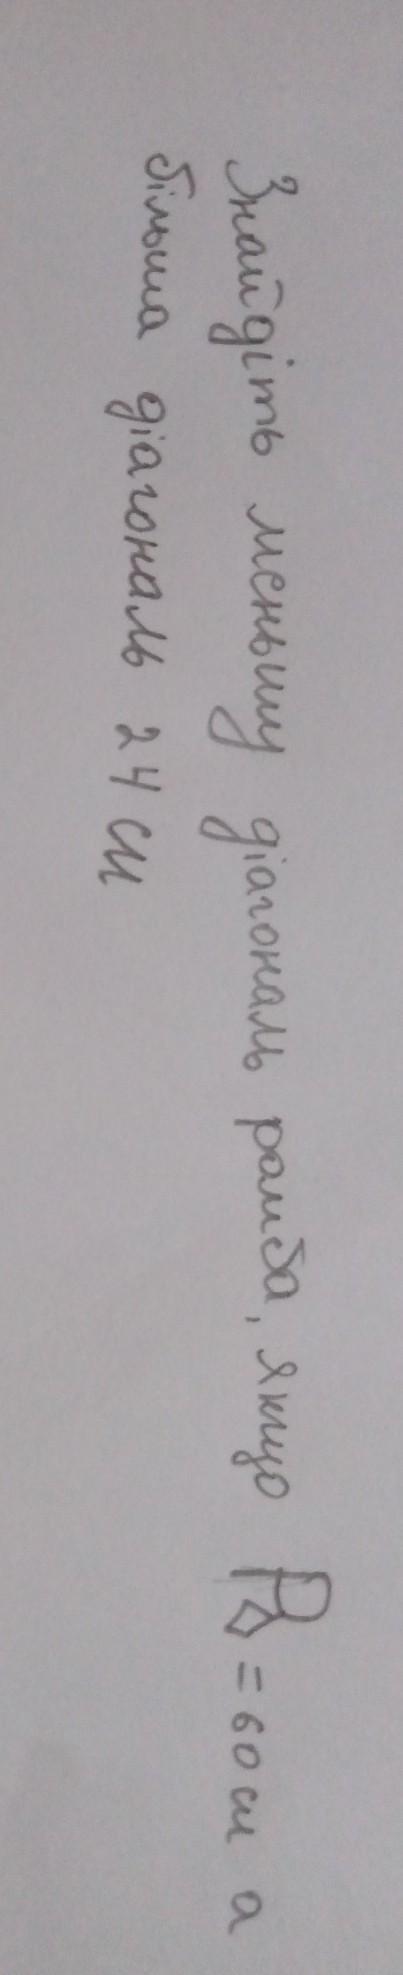 Знайдіть меньшу діагональ ромба, якщо P◇ = 60 см а
більша діагональ 24 см